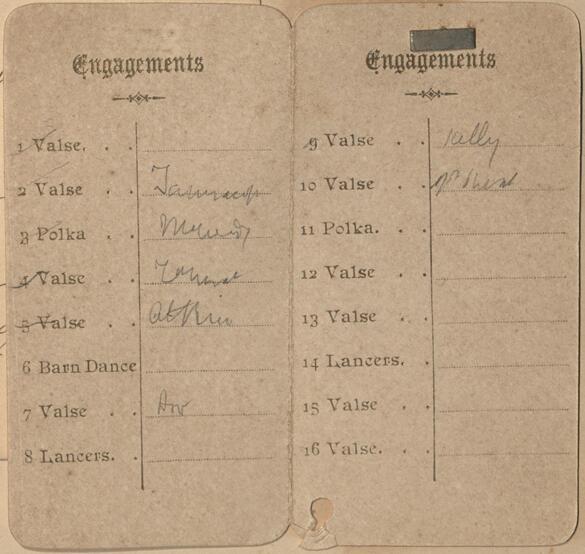 Engagements
1 Valse. . .
2 Valse . .
3 Polka . .
4 Valse . .
5 Valse . .
6 Barn Dance
7 Valse . .
8 Lancers. .
Engagements
9 Valse . .
10 Valse . .
11 Polka. . .
12 Valse . .
13 Valse . .
14 Lancers. .
15 Valse . .
16 Valse. . .